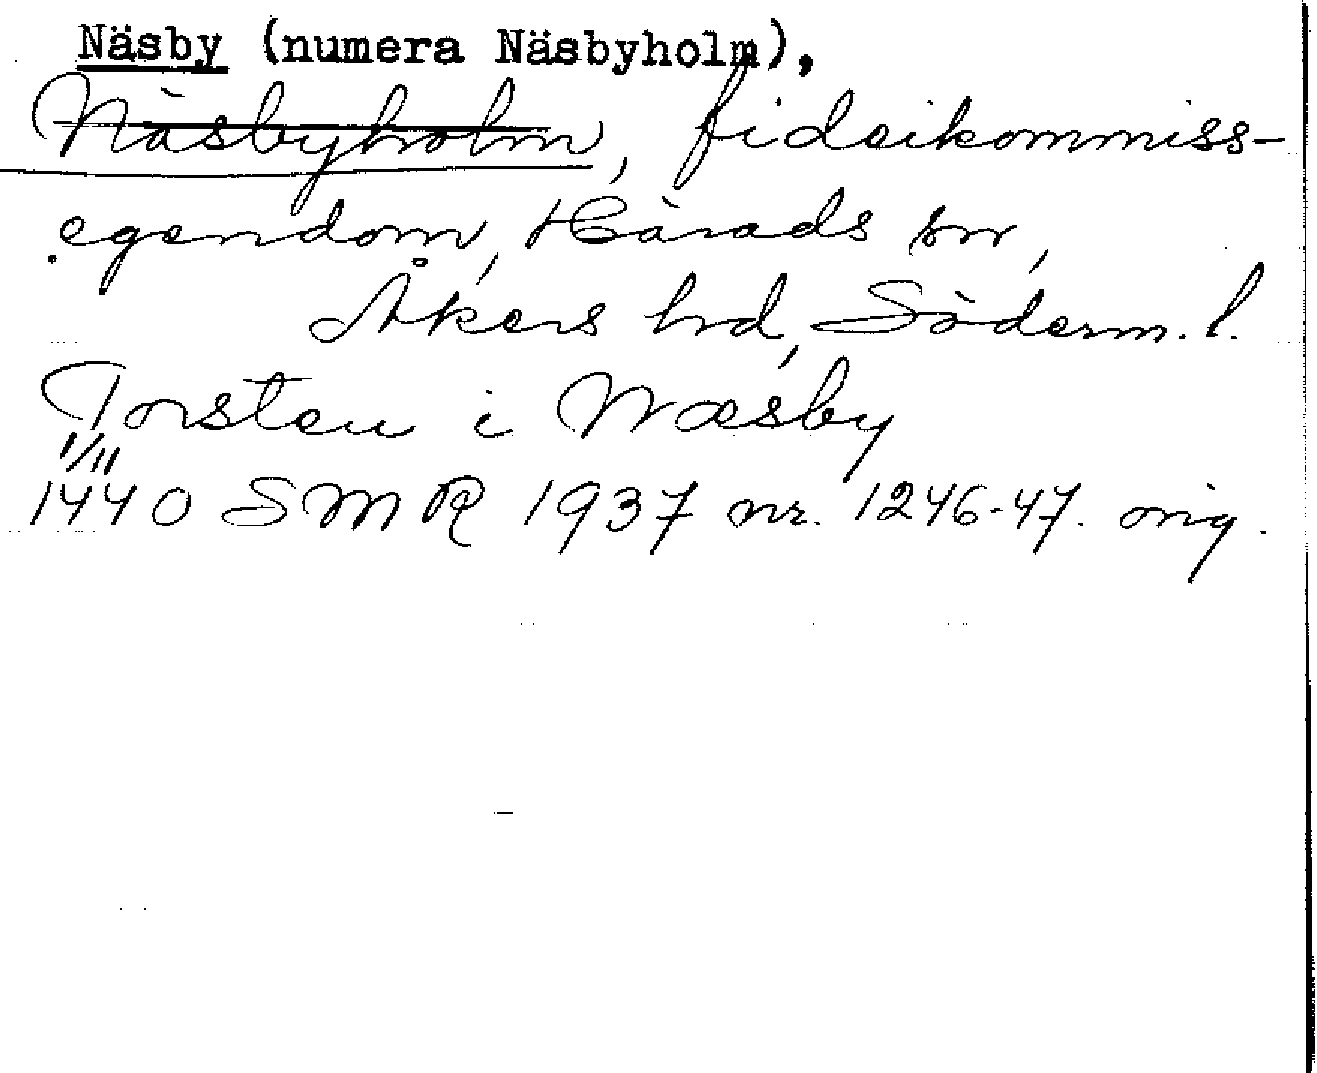 Näsby (numera Näsbyholm),
Näsbyholm, fideikommiss-
egendom, Härads sn,
Åkers hd, Söderm. l.
Torsten i Næsby
1/11
1440 SMR 1937 nr. 1246-47. orig.